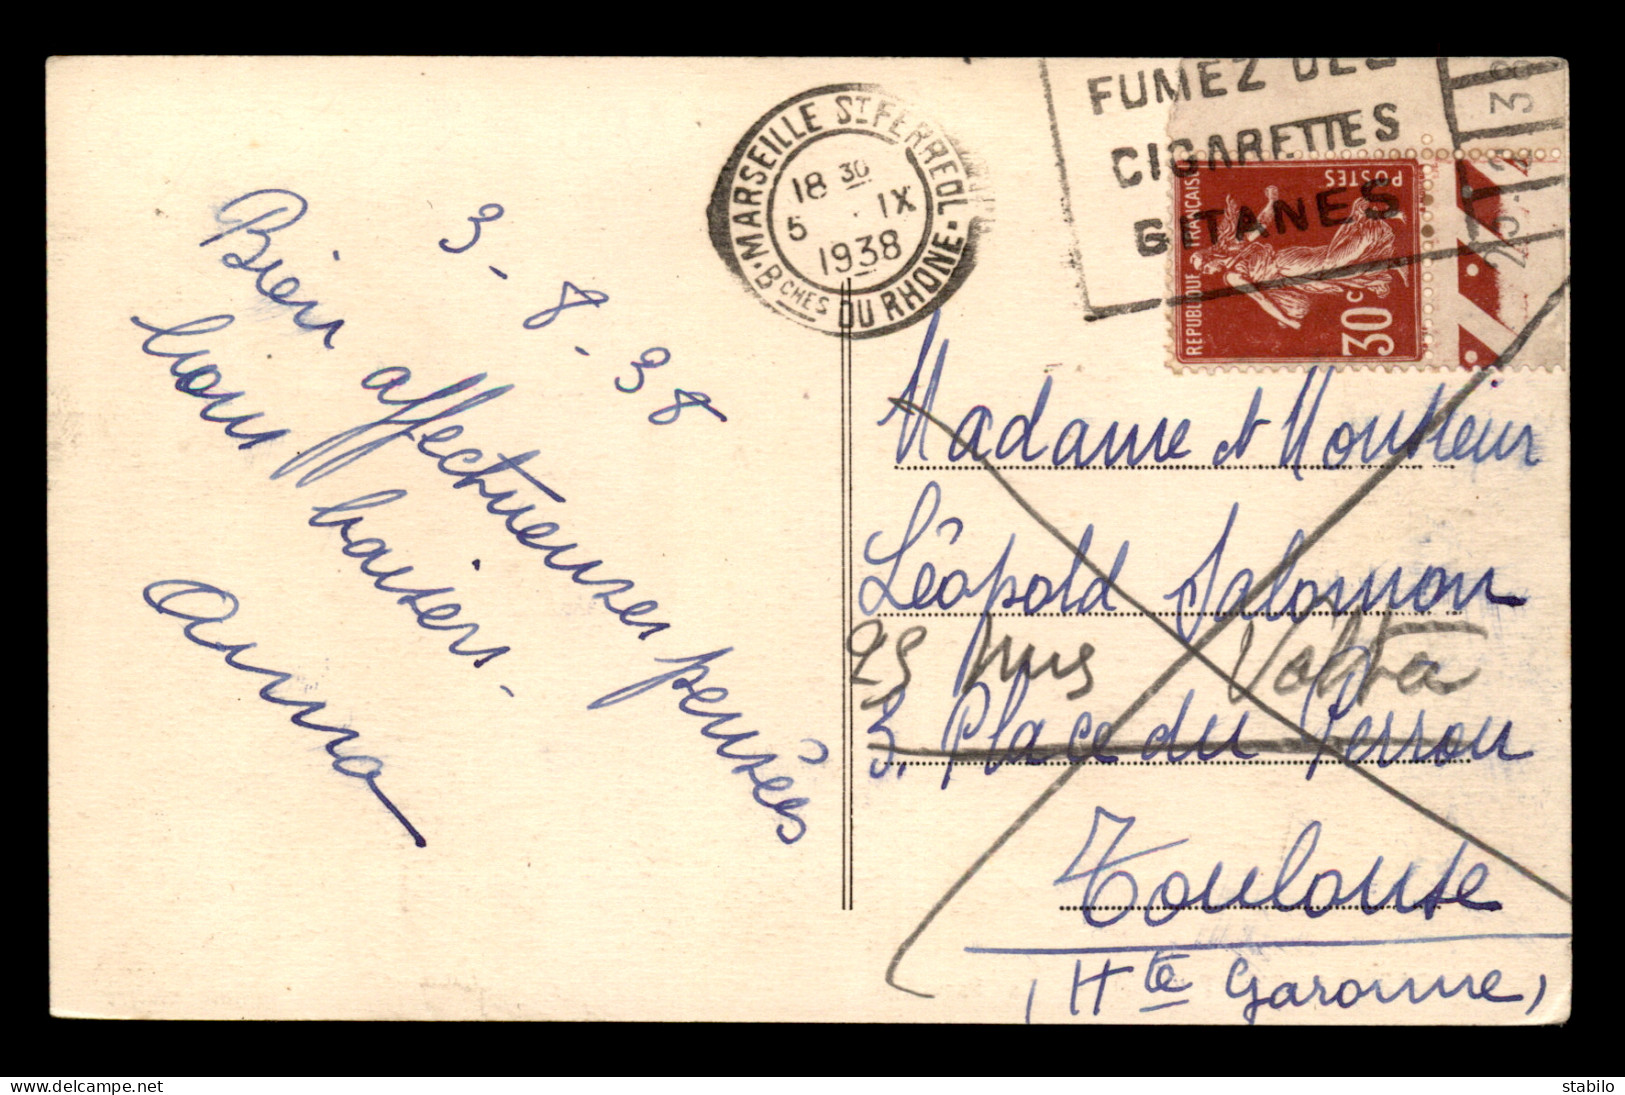 3-8-38
Bien affectueuses pensées
bons baisers-
Anna
MARSEILLE ST FERREOL
18 30
5 IX
1938
Bches DU RHONE
FUMEZ DES
CIGARETTES
GITANES
REPUBLIQUE FRANÇAISE
POSTES
30c
Madame et Monsieur
Léopold Salomon
rue
3, Place du Perrou
Toulouse
(Hte Garonne)
delcampe.net
stabilo